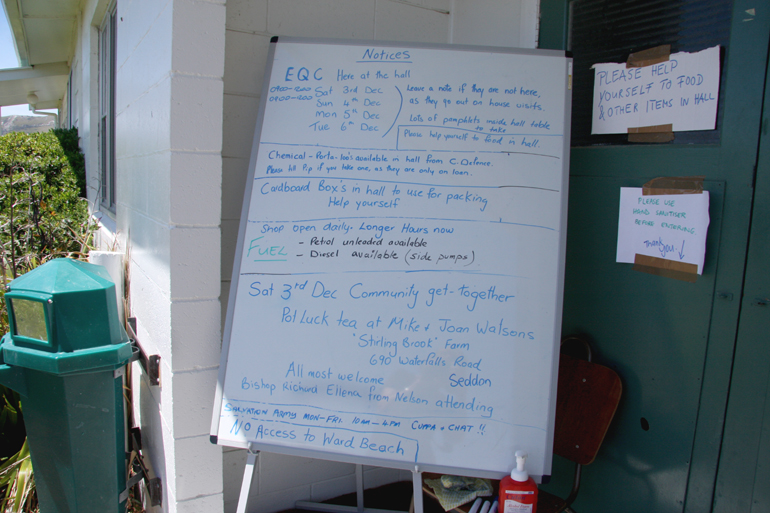 Notices
EQC Here at the hall
0900-2000 Sat 3rd Dec
0900-2000 Sun 4th Dec
Mon 5th Dec
Tue 6th Dec
Leave a note if they are not here,
as they go out on house visits.
Lots of pamphlets inside hall table
to take
Please help yourself to food in hall.
Chemical - Porta-loo's available in hall from C. Defence.
Please tell Pip if you take one, as they are only on loan.
Cardboard Box's in hall to use for packing
Help yourself
Shop open daily - Longer Hours now
FUEL - Petrol unleaded available
- Diesel available (side pumps)
Sat 3rd Dec Community get-together
Pot Luck tea at Mike & Joan Walsons
'Stirling Brook' Farm
690 Waterfalls Road
Seddon
All most welcome
Bishop Richard Ellena from Nelson attending
SALVATION ARMY MON-FRI 10AM-4PM CUPPA & CHAT !!
No Access to Ward Beach
PLEASE HELP
YOURSELF TO FOOD
& OTHER ITEMS IN HALL
PLEASE USE
HAND SANITISER
BEFORE ENTERING
Thankyou.